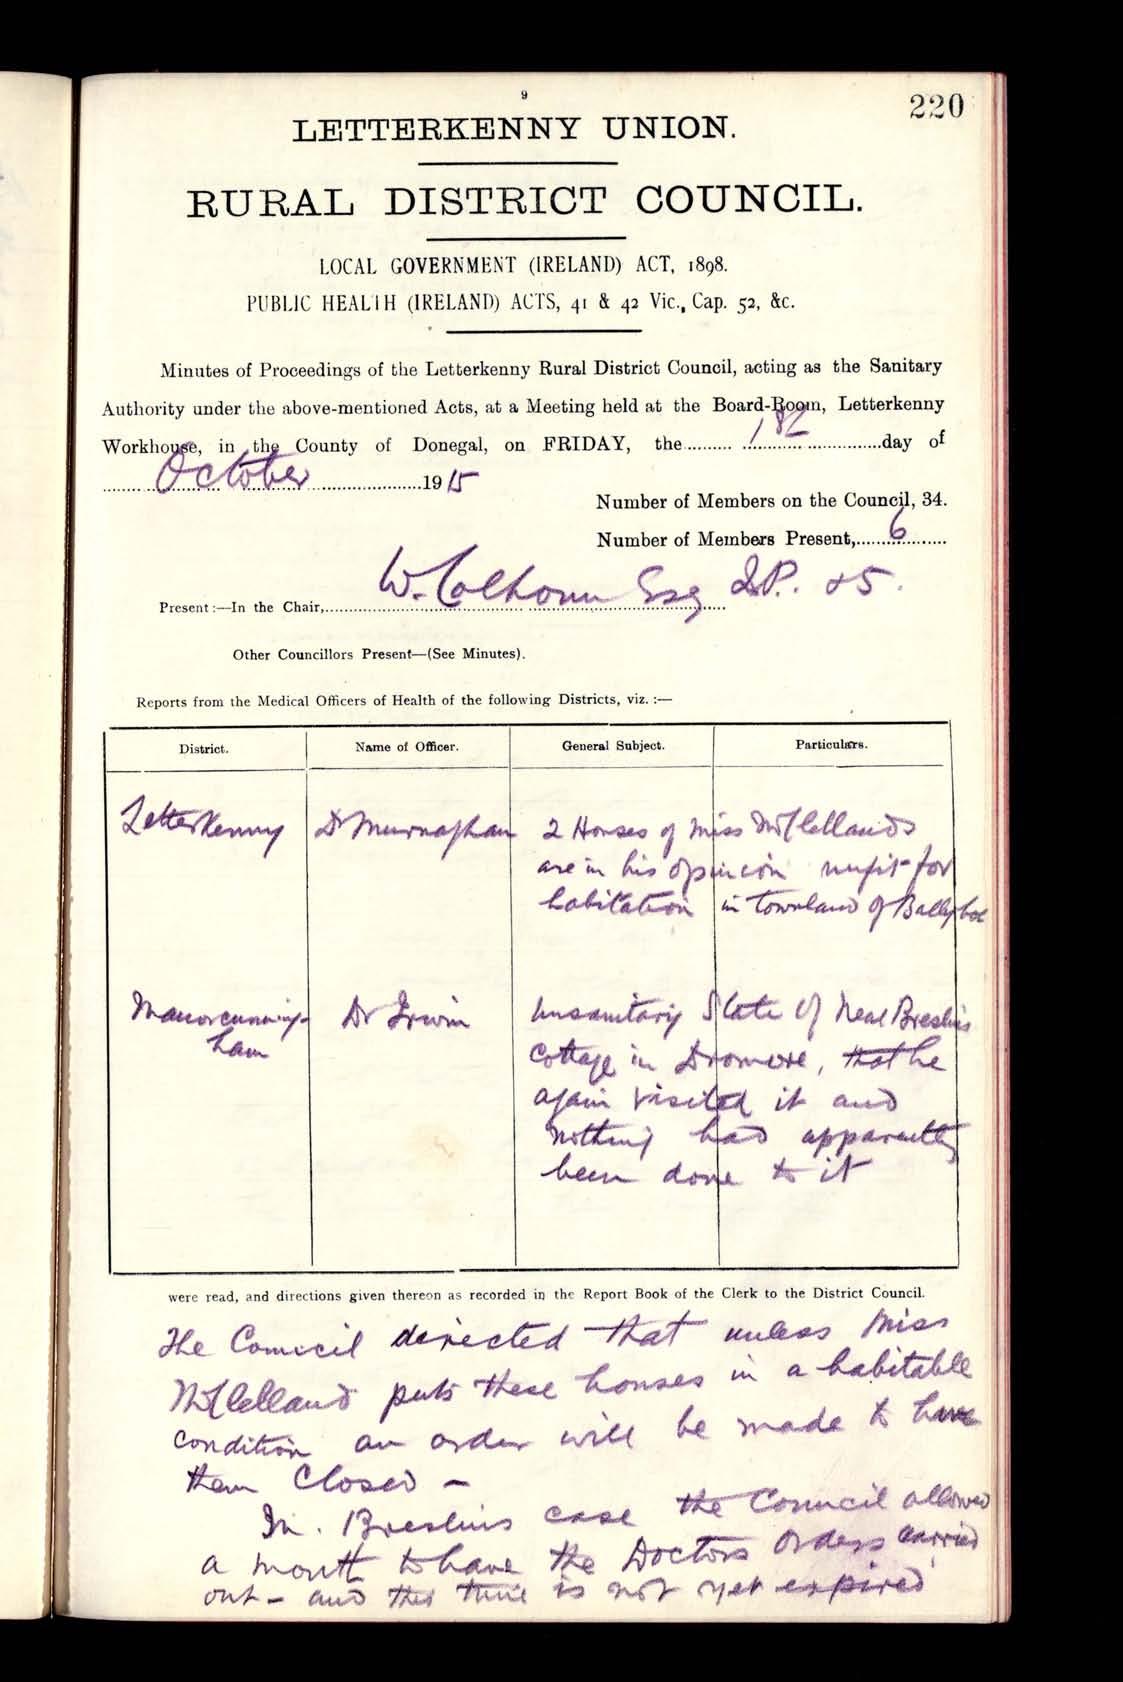 220
9
LETTERKENNY UNION.
RURAL DISTRICT COUNCIL.
LOCAL GOVERNMENT (IRELAND) ACT, 1898.
PUBLIC HEALTH (IRELAND) ACTS, 41 & 42 Vic., Cap. 52, &c.
Minutes of Proceedings of the Letterkenny Rural District Council, acting as the Sanitary
Authority under the above-mentioned Acts, at a Meeting held at the Board-Room, Letterkenny
Workhouse, in the County of Donegal, on FRIDAY, the day of
October 1915
Number of Members on the Council, 34.
Number of Members Present, 6
Present:—In the Chair, W. Colhoun Esq J.P. & 5.
Other Councillors Present—(See Minutes).
Reports from the Medical Officers of Health of the following Districts, viz. :—
District. Name of Officer. General Subject. Particulars.
Letterkenny Dr Murnaghan 2 Houses of Miss McClellands
are in his opinion unfit for
habitation in townland of
Manorcunning-
ham
Dr Irwin Unsanitary State of Neal Breslins
Cottage in Dromore, that he
again visited it and
nothing had apparently
been done to it
were read, and directions given thereon as recorded in the Report Book of the Clerk to the District Council.
The Council directed that unless Miss
McClelland puts these houses in a habitable
condition an order will be made to have
them Closed —
In Breslins case the Council allowed
a month to have the Doctors orders carried
out — and this time is not yet expired